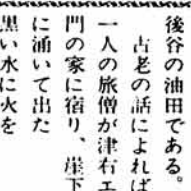 後谷の油田である。
古老の話によれば
一人の旅僧が津右エ
門の家に宿り、崖下
に涌いて出た
黒い水に火を